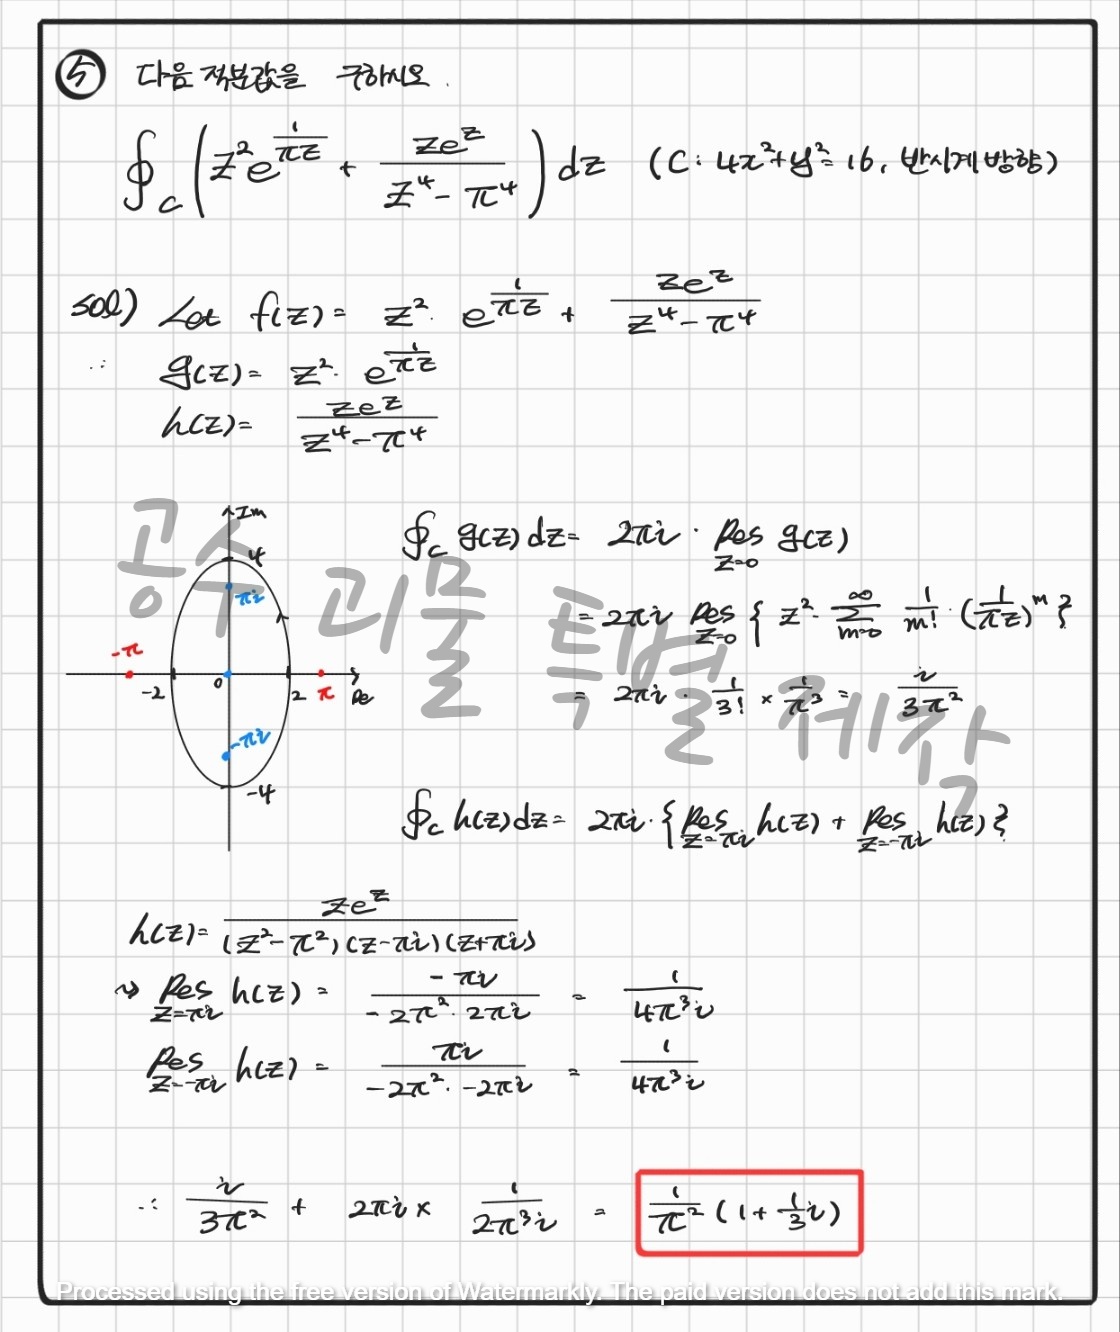 ⑤ 다음 적분값을 구하시오.
∮_C (z² e^{1/πz} + ze^z / (z⁴ - π⁴)) dz (C: 4x²+y²=16, 반시계방향)
sol) Let f(z) = z²· e^{1/πz} + ze^z / (z⁴ - π⁴)
∴ g(z) = z²· e^{1/πz}
h(z) = ze^z / (z⁴ - π⁴)
공수 괴물 특별 제작
Im
4
πi
-π
-2
0
2
π
Re
-πi
-4
∮_C g(z) dz = 2πi · Res_{z=0} g(z)
= 2πi Res_{z=0} { z²· Σ_{m=0}^{∞} 1/m! · (1/πz)^m }
= 2πi · 1/3! × 1/π³ = i/3π²
∮_C h(z) dz = 2πi · { Res_{z=πi} h(z) + Res_{z=-πi} h(z) }
h(z) = ze^z / (z² - π²)(z - πi)(z + πi)
↝ Res_{z=πi} h(z) = -πi / -2π²· 2πi = 1/4π³i
Res_{z=-πi} h(z) = πi / -2π²· -2πi = 1/4π³i
∴ i/3π² + 2πi × 1/2π³i = 1/π² (1 + 1/3 i)
Processed using the free version of Watermarkly. The paid version does not add this mark.